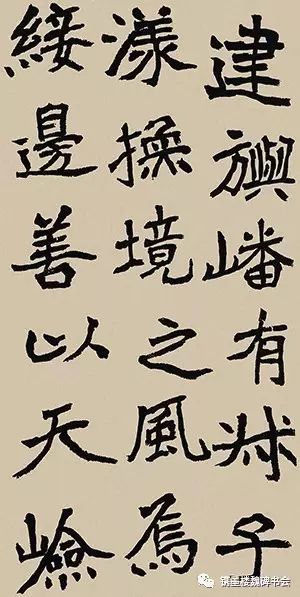 建旟嶓有叔子
漾操境之風焉
綏邊善以天嶮
楼魏碑书会